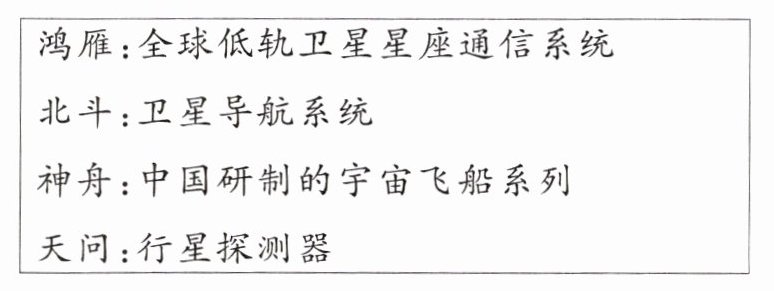 鸿雁:全球低轨卫星星座通信系统
北斗:卫星导航系统
神舟:中国研制的宇宙飞船系列
天问:行星探测器